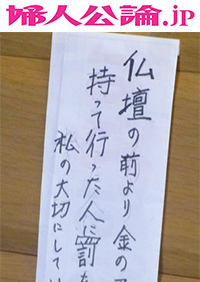 婦人公論.jp
仏壇の前より金の
持って行った人に罰な
私の大切にしてい